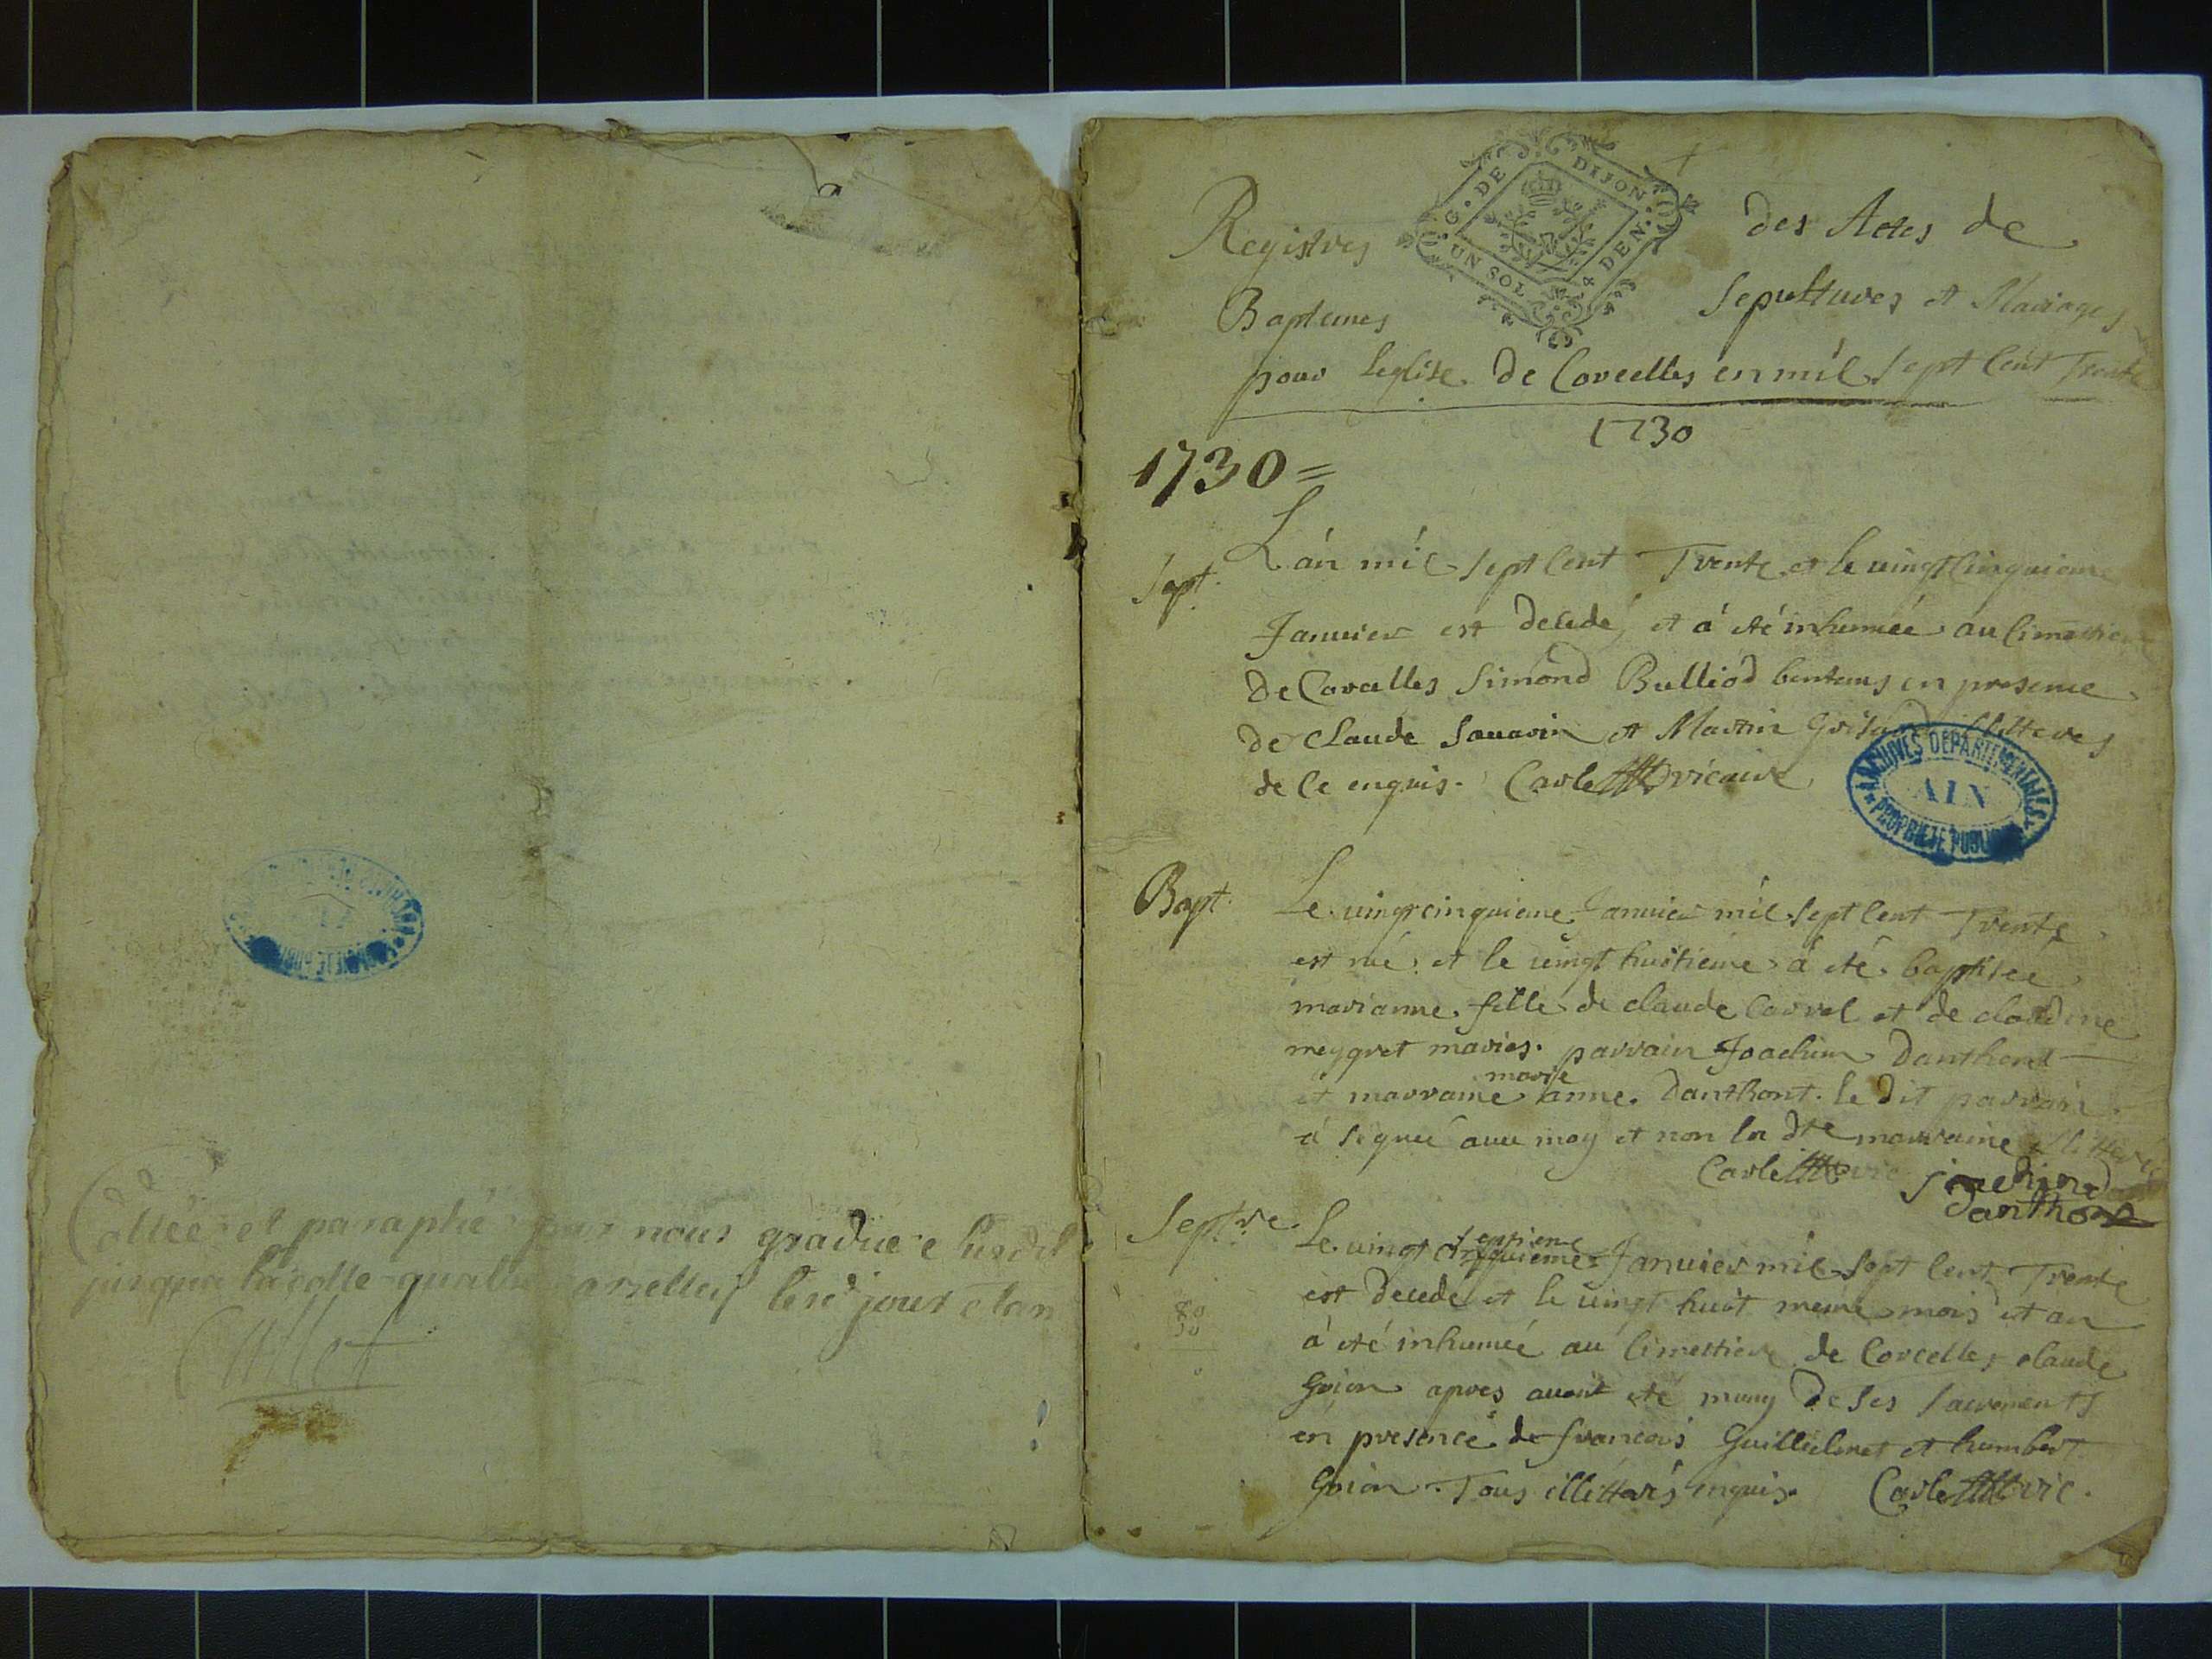 Cottée et paraphé par nous gradué
jusqua la cotte jour et an
Registres des Actes de
G. DE DIJON
UN SOL 4 DEN.
Baptemes Sepultures et Mariages
pour Leglise de Corcelles en mil sept cent Trente
1730
1730=
Sept.
L'an mil sept cent Trente et le vingt cinquieme
Januier est decedé, et a été inhumée au cimettiere
de Corcelles Simond Bulliod en presence
de Claude Sauarin et Martin illitteres
de ce enquis. Carle vicaire
ARCHIVES DEPARTEMENTALES
AIN
PROPRIETE PUBLIQUE
Bapt.
Le uingt cinquieme Januier mil sept cent Trente
est né et le uingt huitieme a été baptisee
marianne fille de claude Corvel et de claudine
meygret mariés. parrain Joachim Danthond
et marraine marie anne Danthont. le dit parrain
a signé auec moy et non la dte marraine illitterée
Carle vic Joachind
danthon
Septre.
Le uingt septieme Januier mil sept cent Trente
est decede et le uingt huit meme mois et an
a été inhumée au cimettiere de Corcelles claude
Goion apres auoir eté muny de ses sacrements
en presence de francois Guillelmet et humbert
Goion. Tous illitterés enquis. Carle vic.